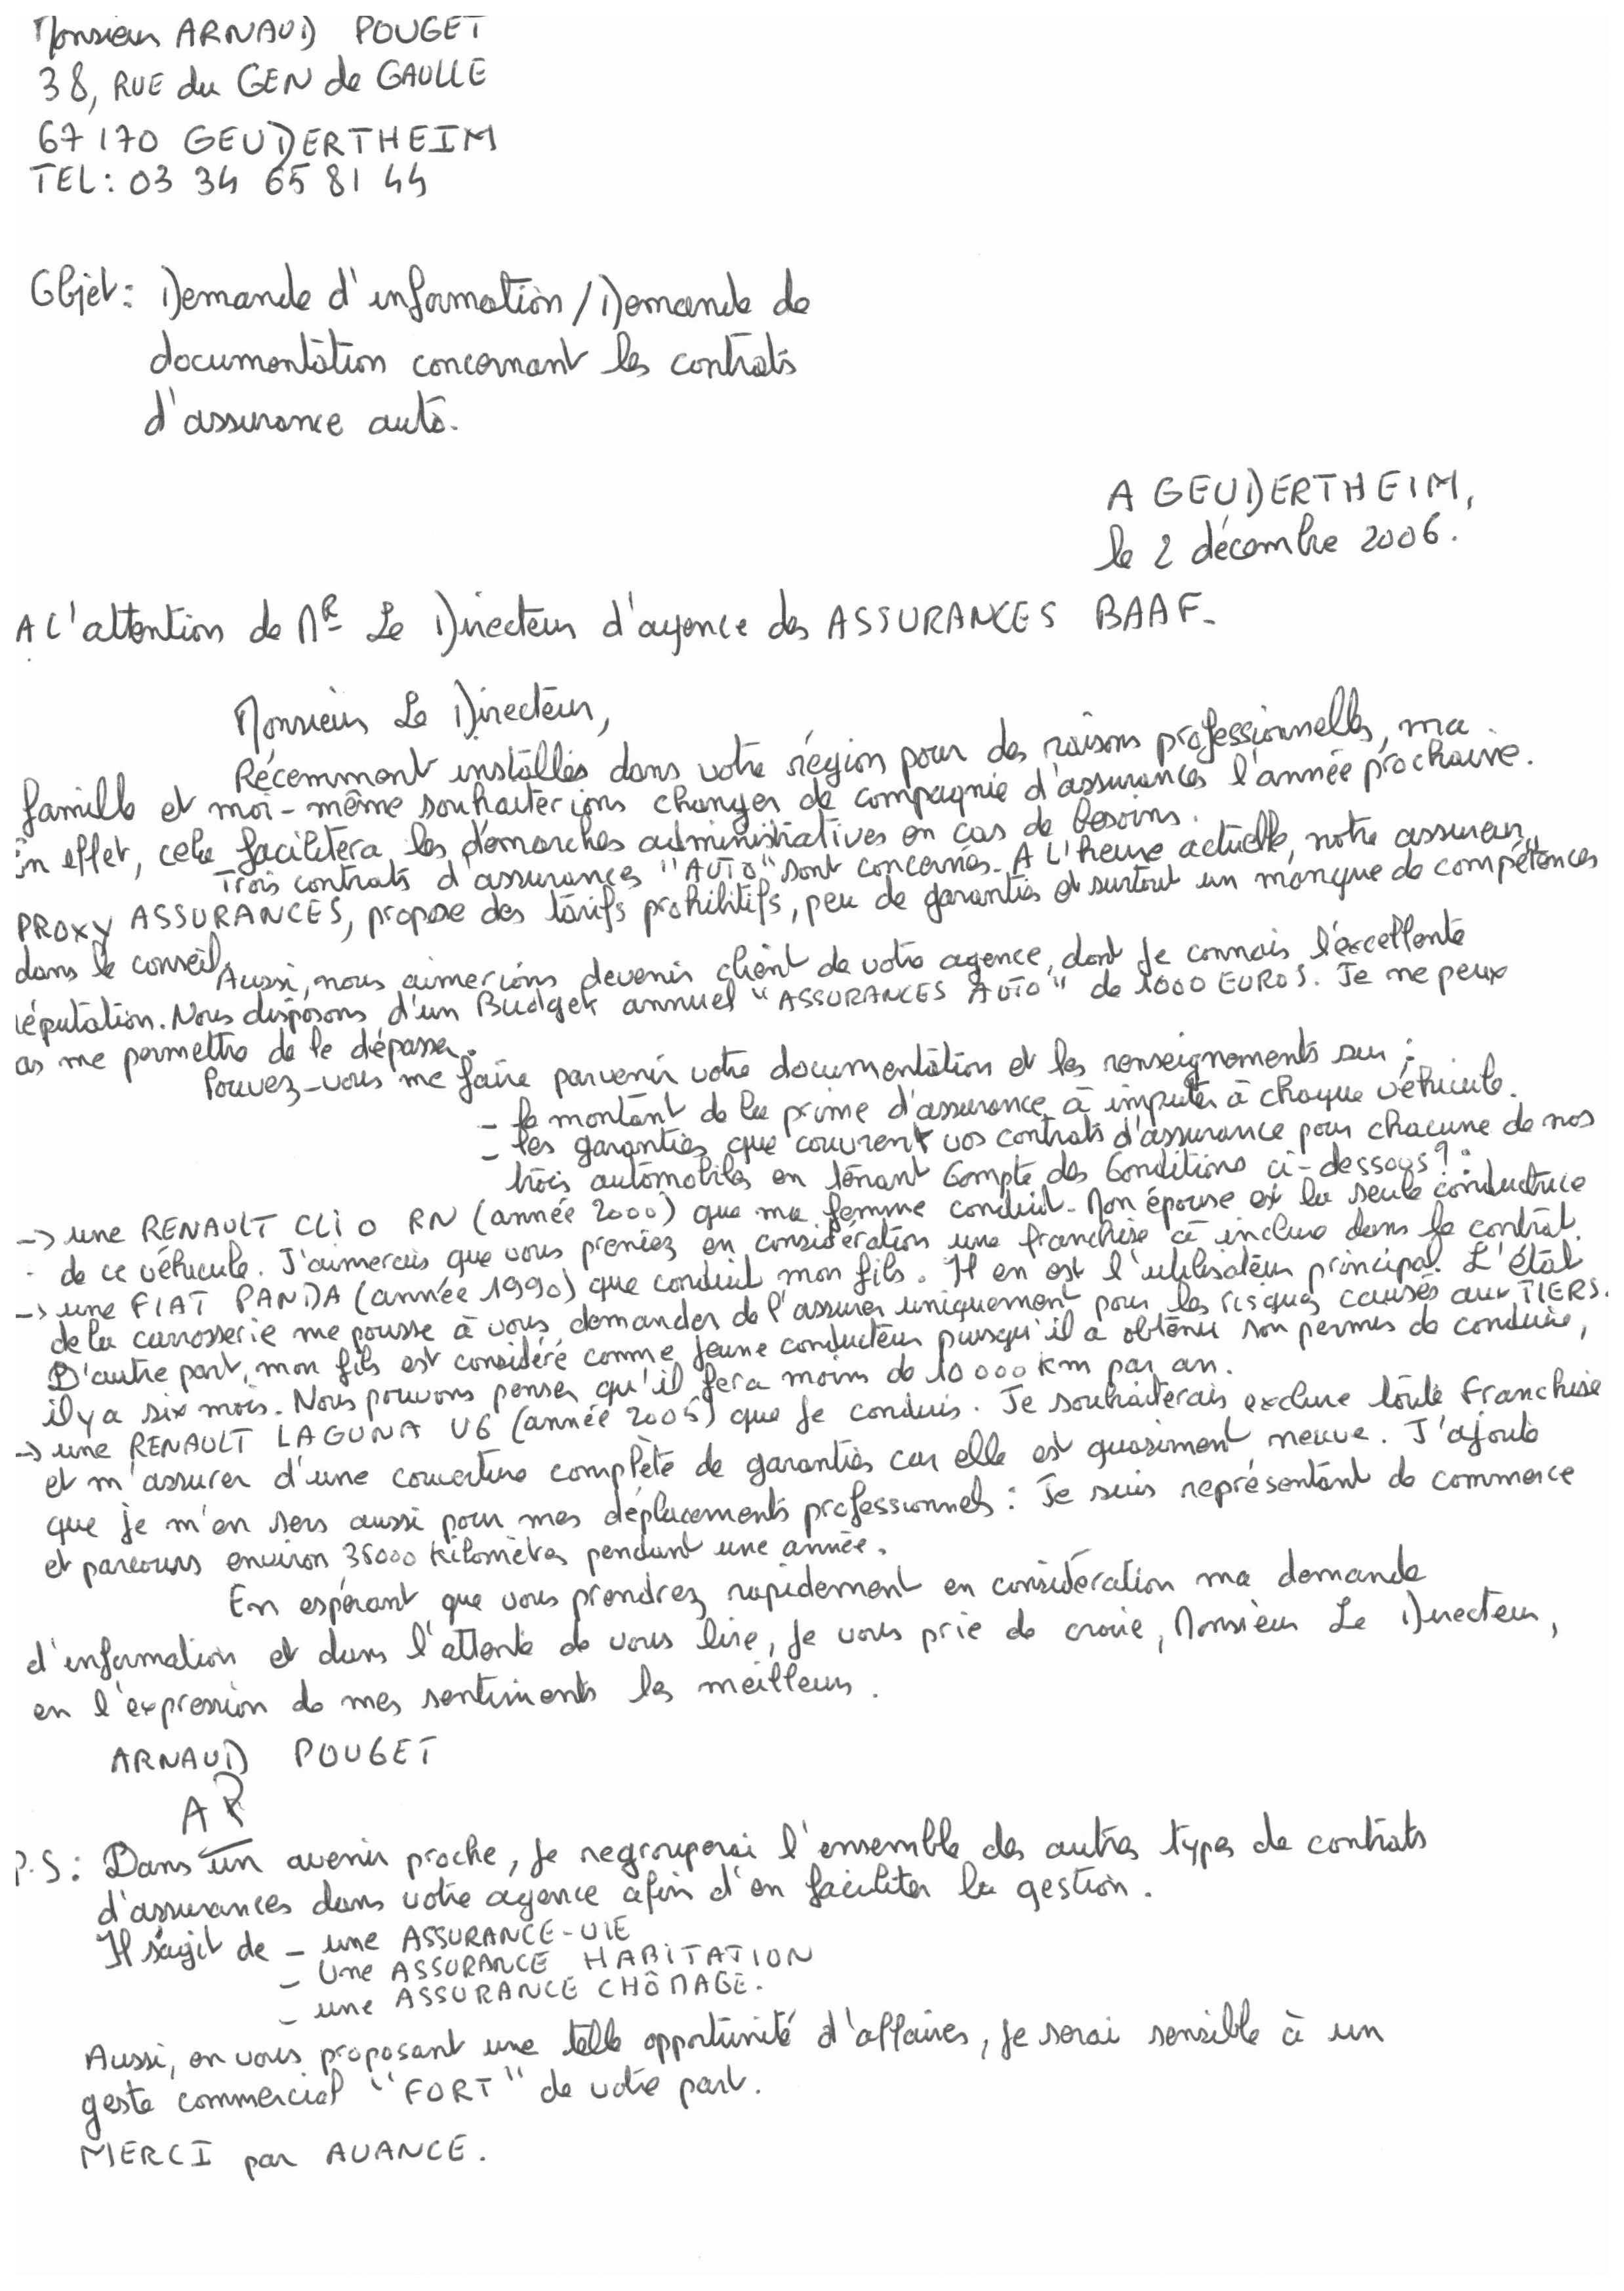 Monsieur ARNAUD POUGET
38, RUE du GEN de GAULLE
67170 GEUDERTHEIM
TEL: 03 34 65 81 44
Objet: Demande d'information / Demande de
documentation concernant les contrats
d'assurance auto.
A GEUDERTHEIM,
le 2 décembre 2006.
A l'attention de MR Le Directeur d'agence des ASSURANCES BAAF.
Monsieur Le Directeur,
Récemment installés dans votre région pour des raisons professionnelles, ma
famille et moi-même souhaiterions changer de compagnie d'assurances l'année prochaine.
En effet, cela facilitera les démarches administratives en cas de besoins.
Trois contrats d'assurances "AUTO" sont concernés. A L'heure actuelle, notre assureur,
PROXY ASSURANCES, propose des tarifs prohibitifs, peu de garanties et surtout un manque de compétences
dans le conseil.
Aussi, nous aimerions devenir client de votre agence, dont je connais l'excellente
réputation. Nous disposons d'un Budget annuel "ASSURANCES AUTO" de 1000 EUROS. Je ne peux
as me permettre de le dépasser.
Pouvez-vous me faire parvenir votre documentation et les renseignements sur :
- le montant de la prime d'assurance à imputer à chaque véhicule.
- les garanties que couvrent vos contrats d'assurance pour chacune de nos
trois automobiles en tenant compte des conditions ci-dessous ? :
-> une RENAULT CLIO RN (année 2000) que ma femme conduit. Mon épouse est la seule conductrice
de ce véhicule. J'aimerais que vous preniez en considération une franchise à inclure dans le contrat.
-> une FIAT PANDA (année 1990) que conduit mon fils. Il en est l'utilisateur principal. L'état
de la carrosserie me pousse à vous demander de l'assurer uniquement pour les risques causés aux TIERS.
D'autre part, mon fils est considéré comme jeune conducteur puisqu'il a obtenu son permis de conduire,
il y a six mois. Nous pouvons penser qu'il fera moins de 10 000 km par an.
-> une RENAULT LAGUNA V6 (année 2005) que je conduis. Je souhaiterais exclure toute franchise
et m'assurer d'une couverture complète de garanties car elle est quasiment neuve. J'ajoute
que je m'en sers aussi pour mes déplacements professionnels : Je suis représentant de commerce
et parcours environ 35000 kilomètres pendant une année.
En espérant que vous prendrez rapidement en considération ma demande
d'information et dans l'attente de vous lire, je vous prie de croire, Monsieur Le Directeur,
en l'expression de mes sentiments les meilleurs.
ARNAUD POUGET
AP
P.S : Dans un avenir proche, je regrouperai l'ensemble des autres types de contrats
d'assurances dans votre agence afin d'en faciliter la gestion.
Il s'agit de - une ASSURANCE-VIE
- Une ASSURANCE HABITATION
- une ASSURANCE CHÔMAGE.
Aussi, en vous proposant une telle opportunité d'affaires, je serai sensible à un
geste commercial "FORT" de votre part.
MERCI par AVANCE.